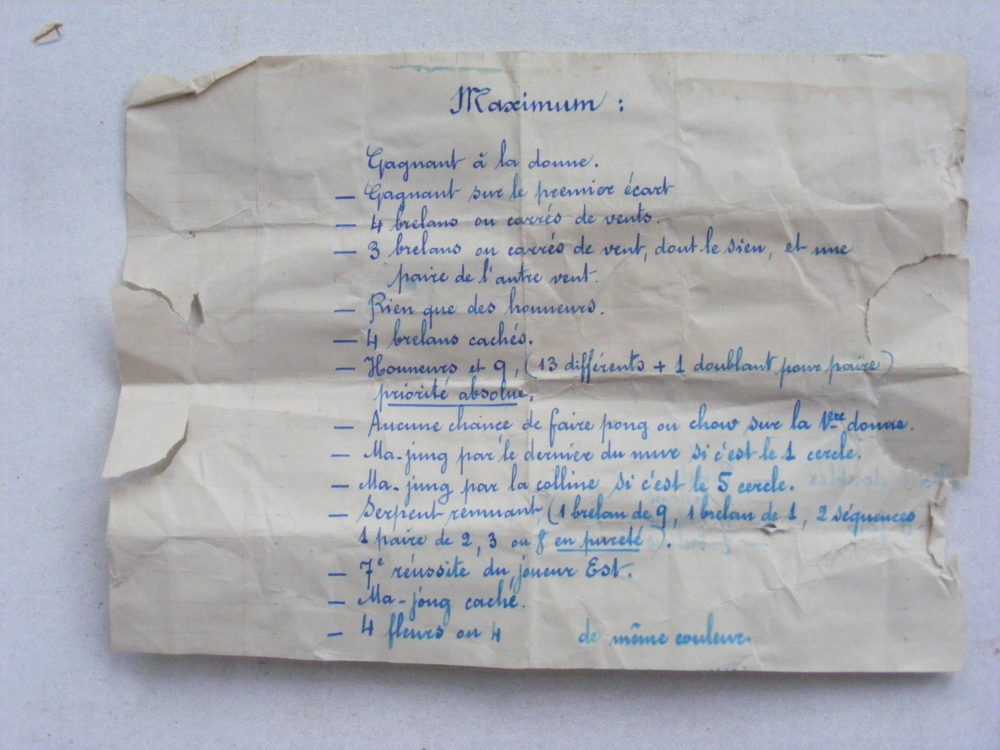 Maximum :
Gagnant à la donne.
— Gagnant sur le premier écart
— 4 brelans ou carrés de vents.
— 3 brelans ou carrés de vent, dont le sien, et une
paire de l'autre vent.
— Rien que des honneurs.
— 4 brelans cachés.
— Honneurs et 9, (13 différents + 1 doublant pour paire)
priorité absolue.
— Aucune chance de faire pong ou chow sur la 1ère donne.
— Ma-jung par le dernier du mur si c'est le 1 cercle.
— Ma-jung par la colline si c'est le 5 cercle.
— Serpent remuant, (1 brelan de 9, 1 brelan de 1, 2 séquences
1 paire de 2, 3 ou 8 en pureté).
— 7e réussite du joueur Est.
— Ma-jong caché.
— 4 fleurs ou 4 de même couleur.